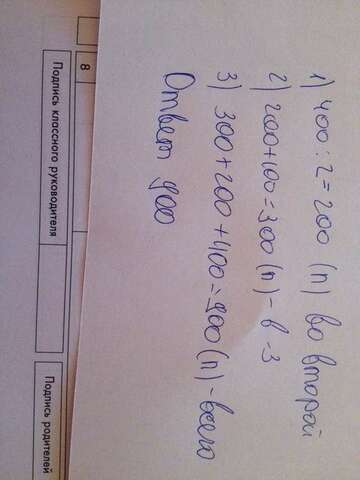 1) 400:2=200 (п) во второй
2) 200+100=300(п)-в-3
3) 300+200+400=900(п)-всего
Ответ 900
8
Подпись классного руководителя
Подпись родителей